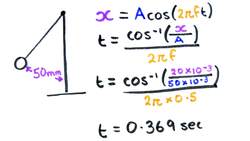 x = A cos(2πft)
t = cos⁻¹(x/A) / 2πf
50mm
t = cos⁻¹(20×10⁻³/50×10⁻³) / 2π×0.5
t = 0.369 sec